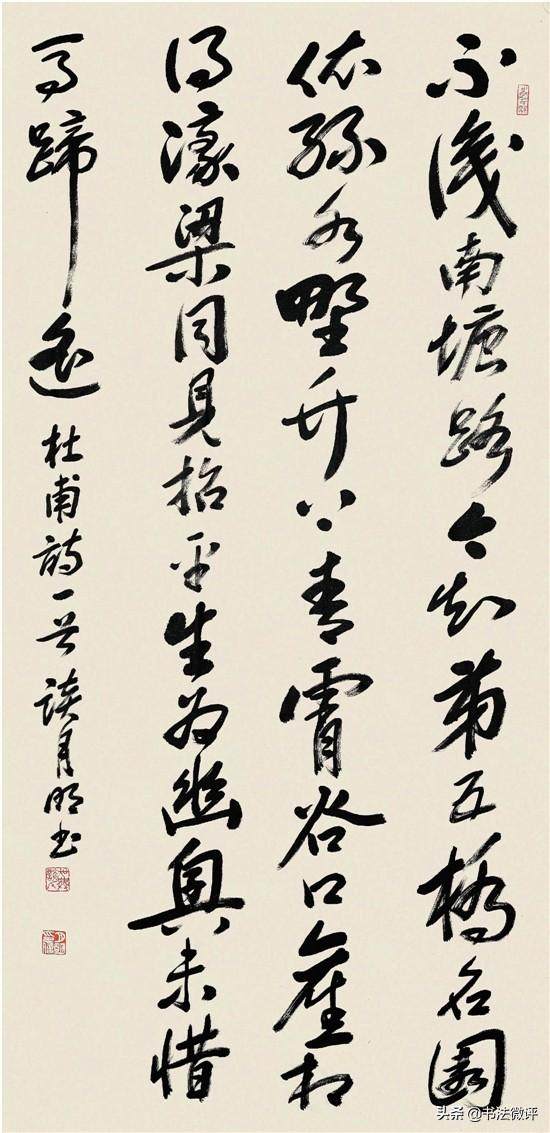 不識南塘路今知第五橋名園
依綠水野竹上青霄谷口舊相
得濠梁同見招平生為幽興未惜
馬蹄遙
杜甫詩一首 談月明書
头条 @书法微评